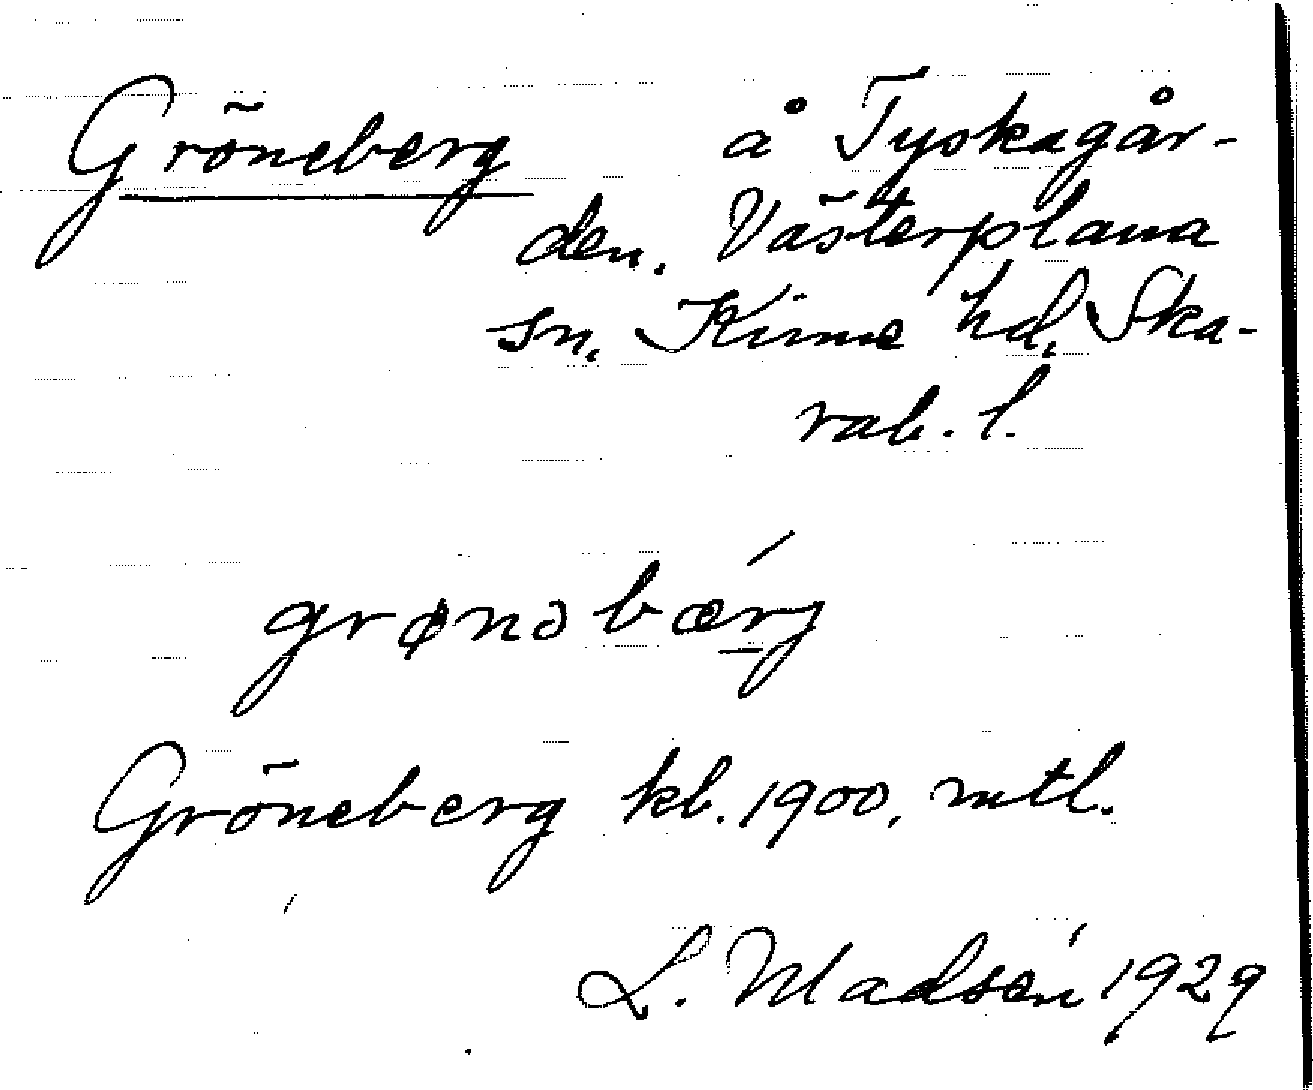 Gröneberg å Tyskagår-
den. Västerplana
sn. Kinne hd. Ska-
rab. l.
grønəbærj
Gröneberg kb. 1900, mtl.
L. Madsén 1929